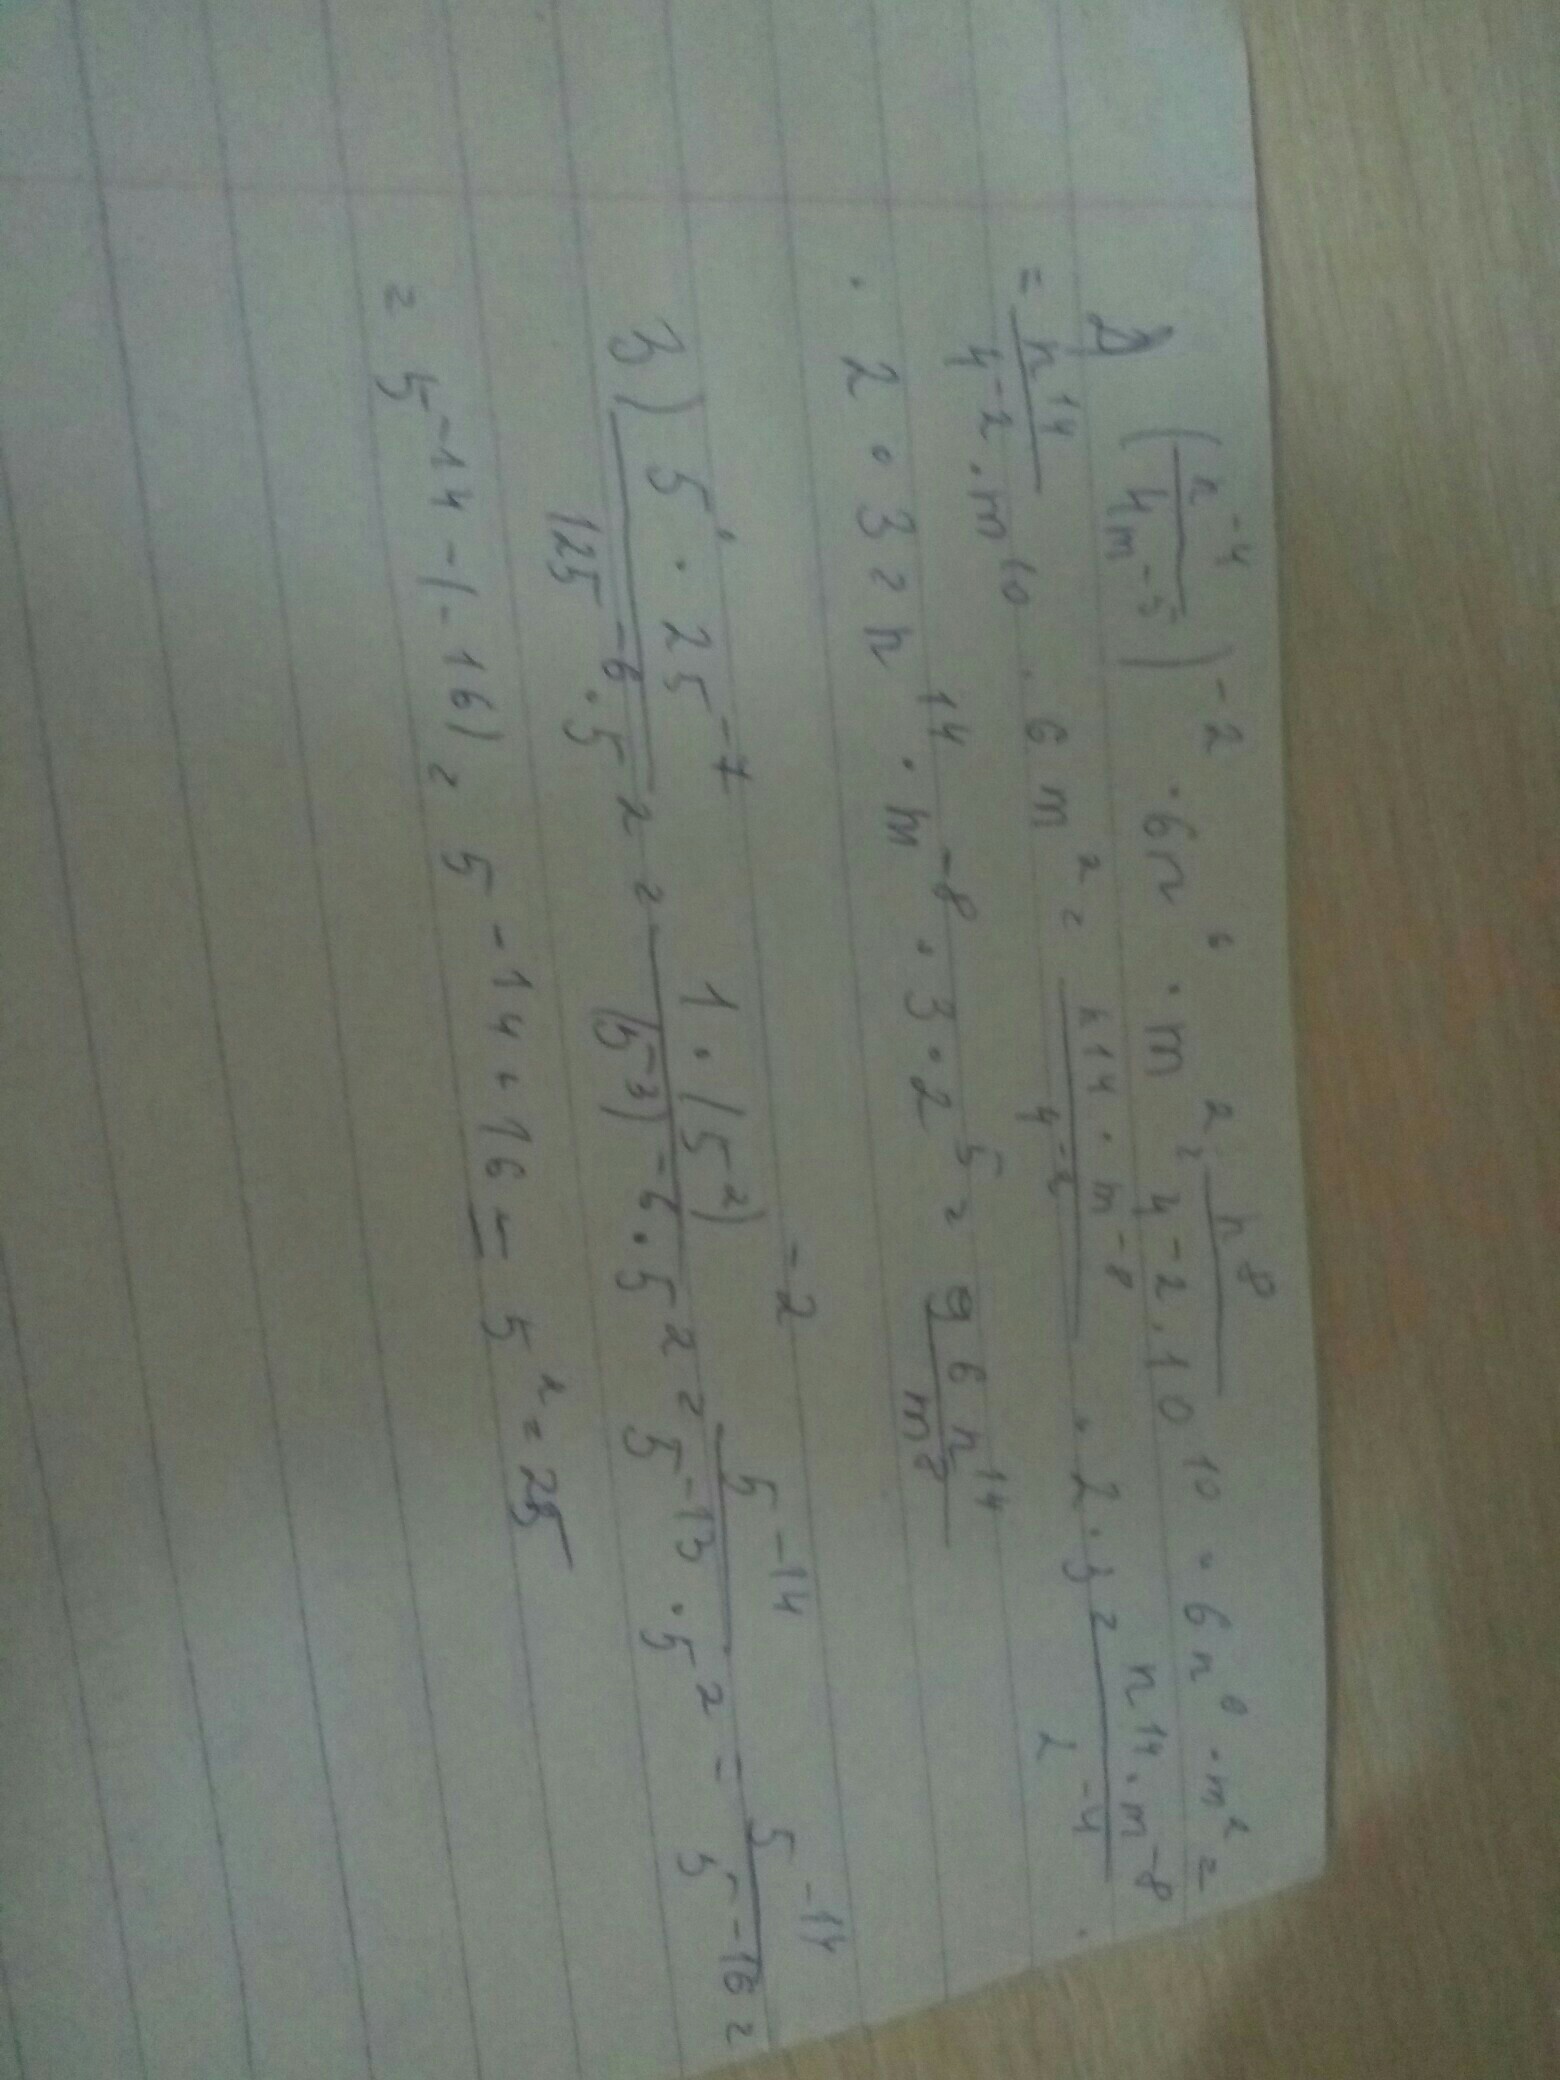 2) (n^-4 / 4m^-5)^-2 · 6n^6 · m^2 = n^8 / 4^-2 · 10^10 · 6n^6 · m^2 =
= n^14 / 4^-2 · m^10 · 6m^2 = n^14 · m^-8 / 4^-2 · 2 · 3 = n^14 · m^-8 / 2^-4 ·
· 2 · 3 = n^14 · m^-8 · 3 · 2^5 = 96n^14 / m^8
3) 5^0 · 25^-7 / 125^-6 · 5^2 = 1 · (5^2)^-2 / (5^3)^-6 · 5^2 = 5^-14 / 5^-13 · 5^2 = 5^-14 / 5^-16 =
= 5^-14-(-16) = 5^-14+16 = 5^2 = 25